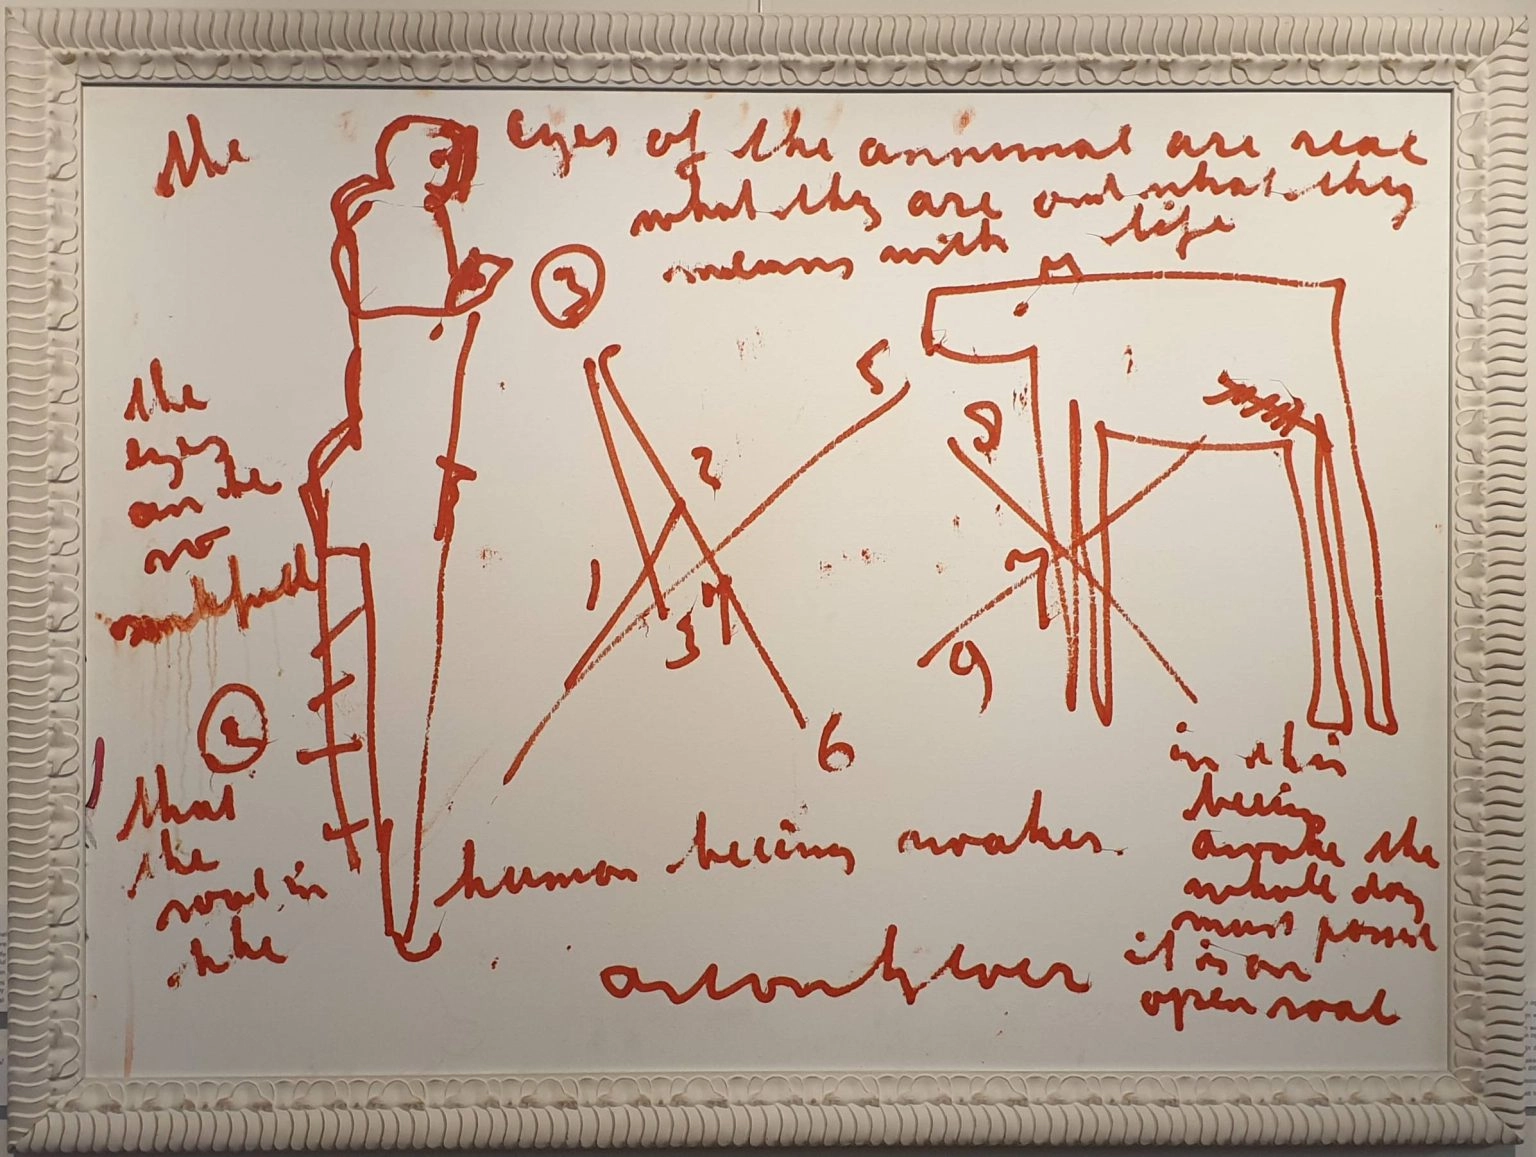 the eyes of the annimal are real
what they are and what they
means with life
3
the
eyes
are the
no
2
that
the
road in
the
1
2
3
4
5
6
7
8
9
human beeing wakes.
in this
beeing
awake the
whole day
must
it is an
open road